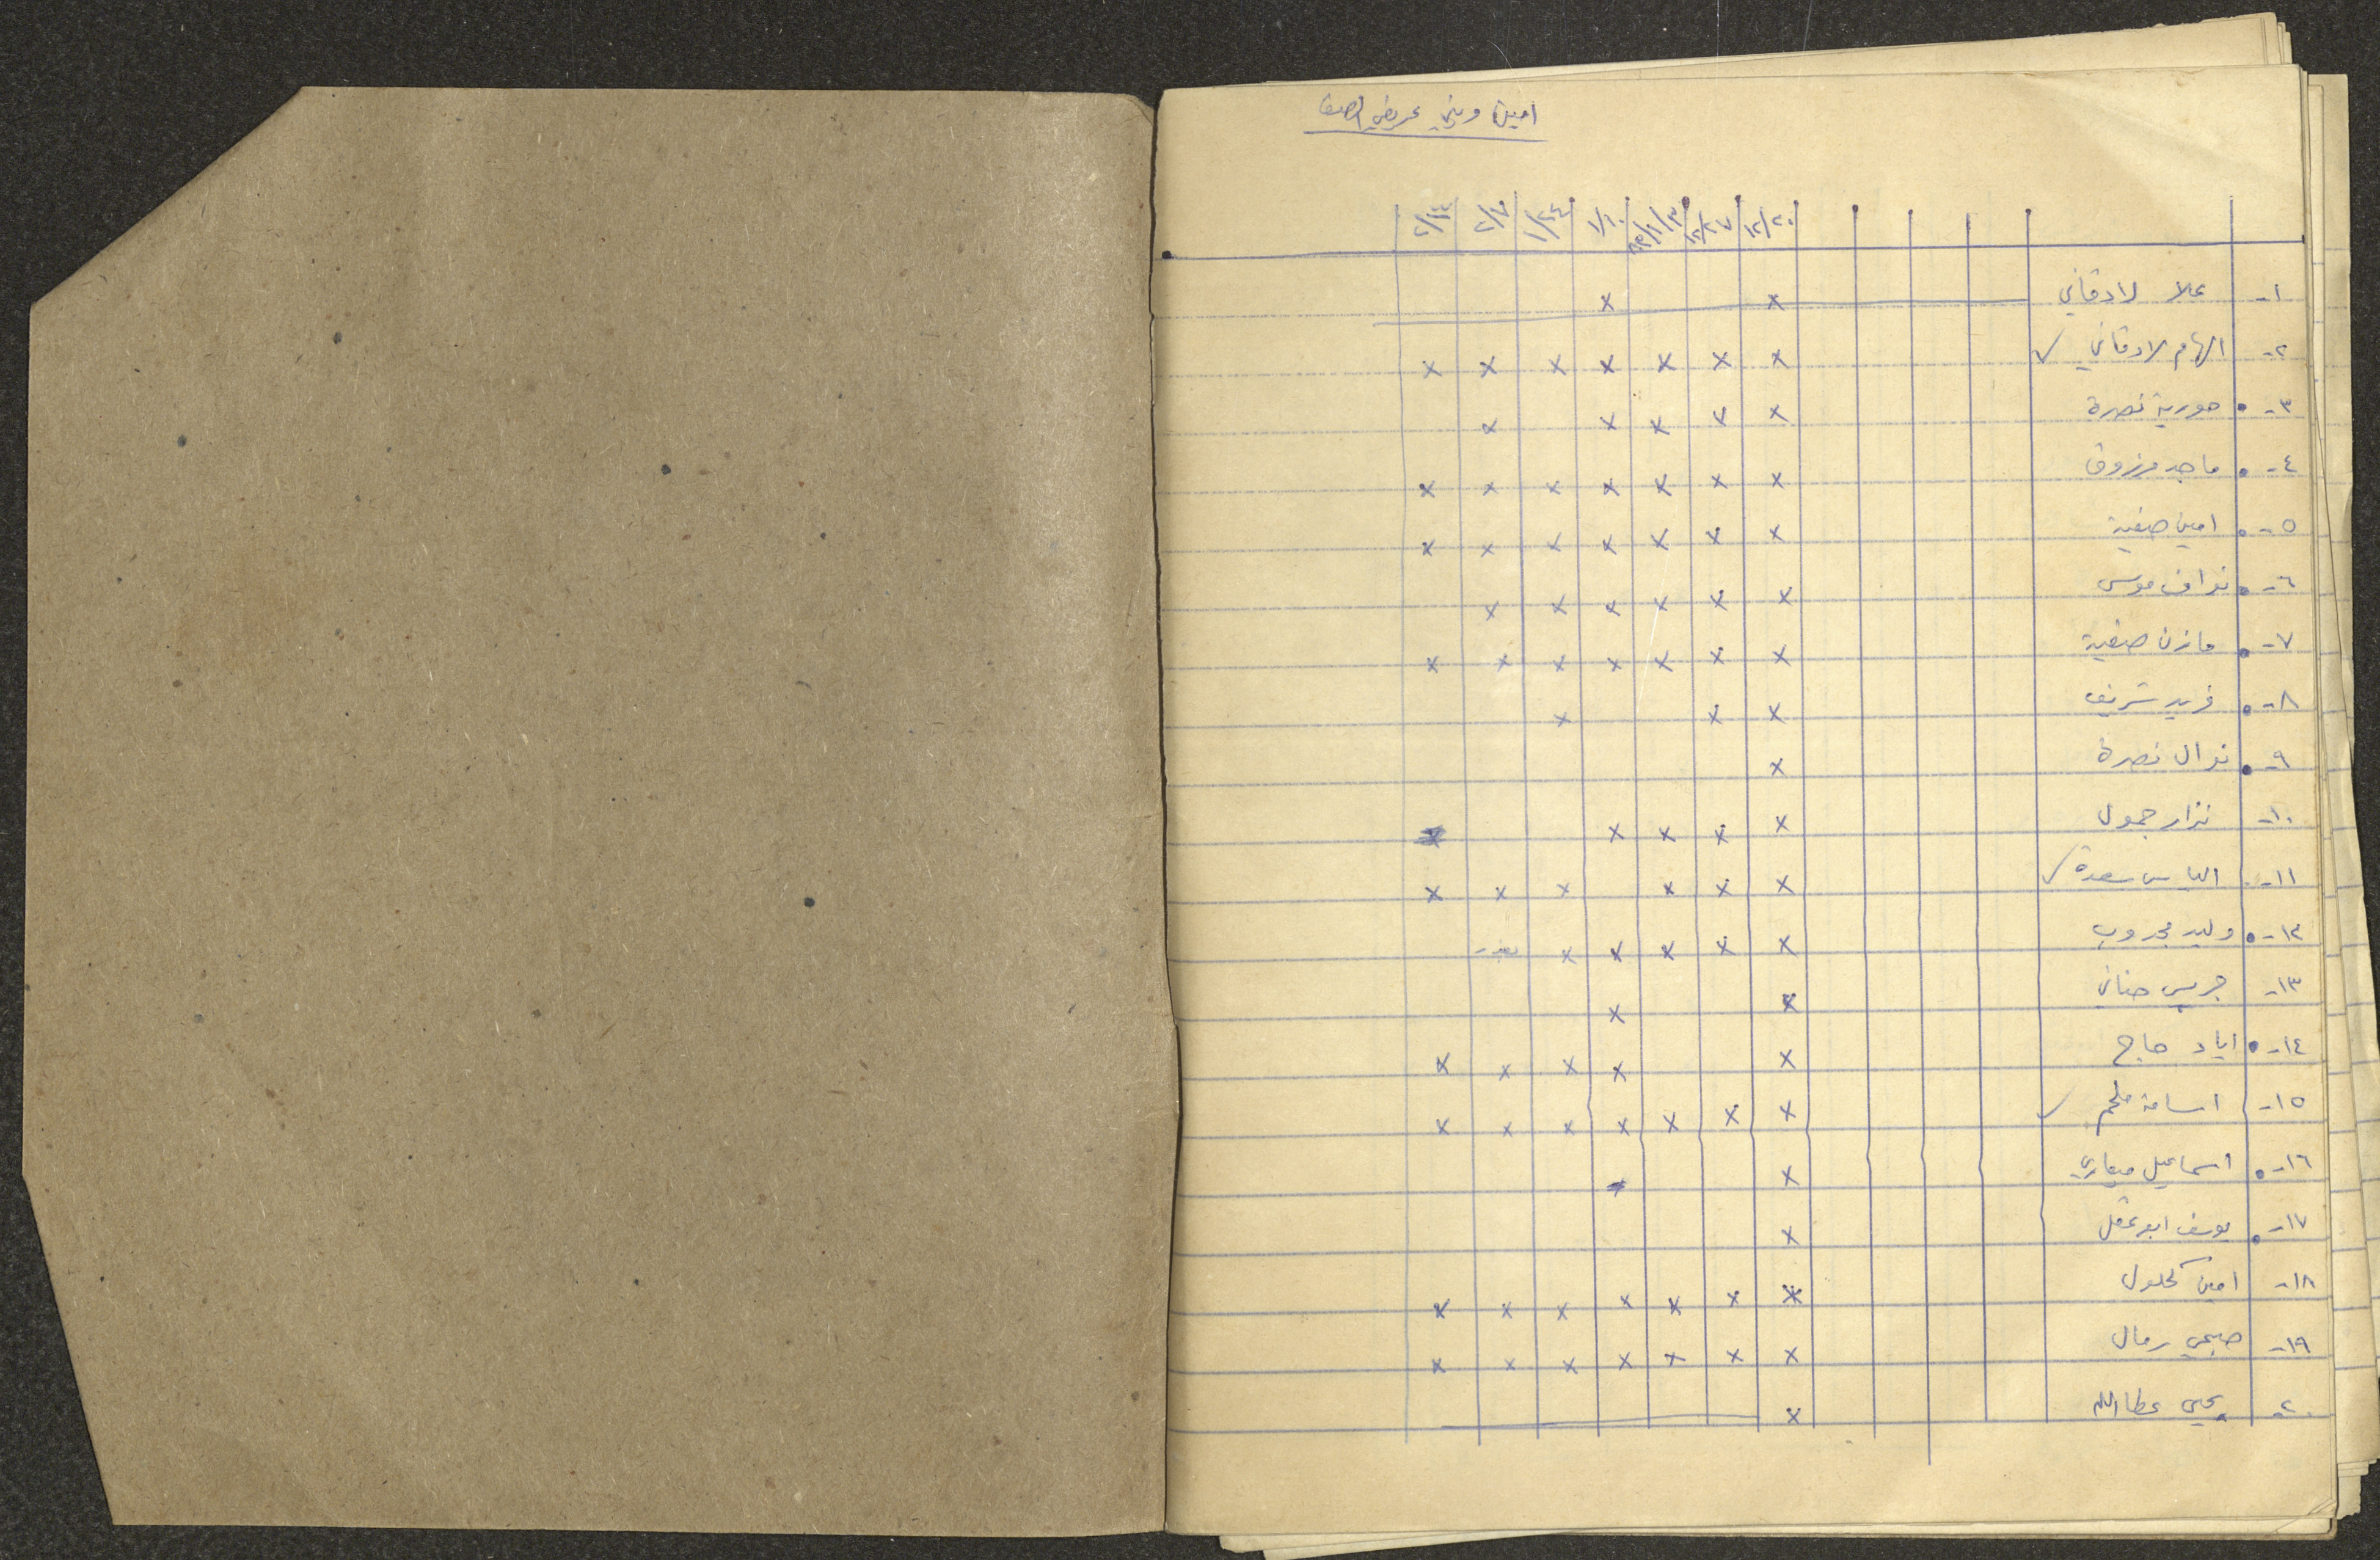 امين وينج عريض الصف
١٢/٢٠ ١٢/٢٧ ٨٣/١/٣ ١/١٠ ١/٢٤ ٢/٧ ٢/١٤
١- علا لادقاني x x
٢- الهام لادقاني ✓ x x x x x x x
٣- حورية نصرة x x x x x
٤- ماجد مرزوق x x x x x x x
٥- امين صفية x x x x x x x
٦- نواف موسى x x x x x x
٧- مازن صفية x x x x x x x
٨- فريد شريف x x x
٩- نوال نصرة x
١٠- نزار جمول x x x x x
١١- الياس سعدة ✓ x x x x x x
١٢- وليد مجدوب x x x x x
١٣- جريس حناني x x
١٤- اياد حاج x x x x x
١٥- اسامة ملحم ✓ x x x x x x x
١٦- اسماعيل ميعاري x x
١٧- يوسف ابو عقل x
١٨- امين كحلول x x x x x x x
١٩- صبحي رمال x x x x x x x
٢٠- يحيى عطاالله x